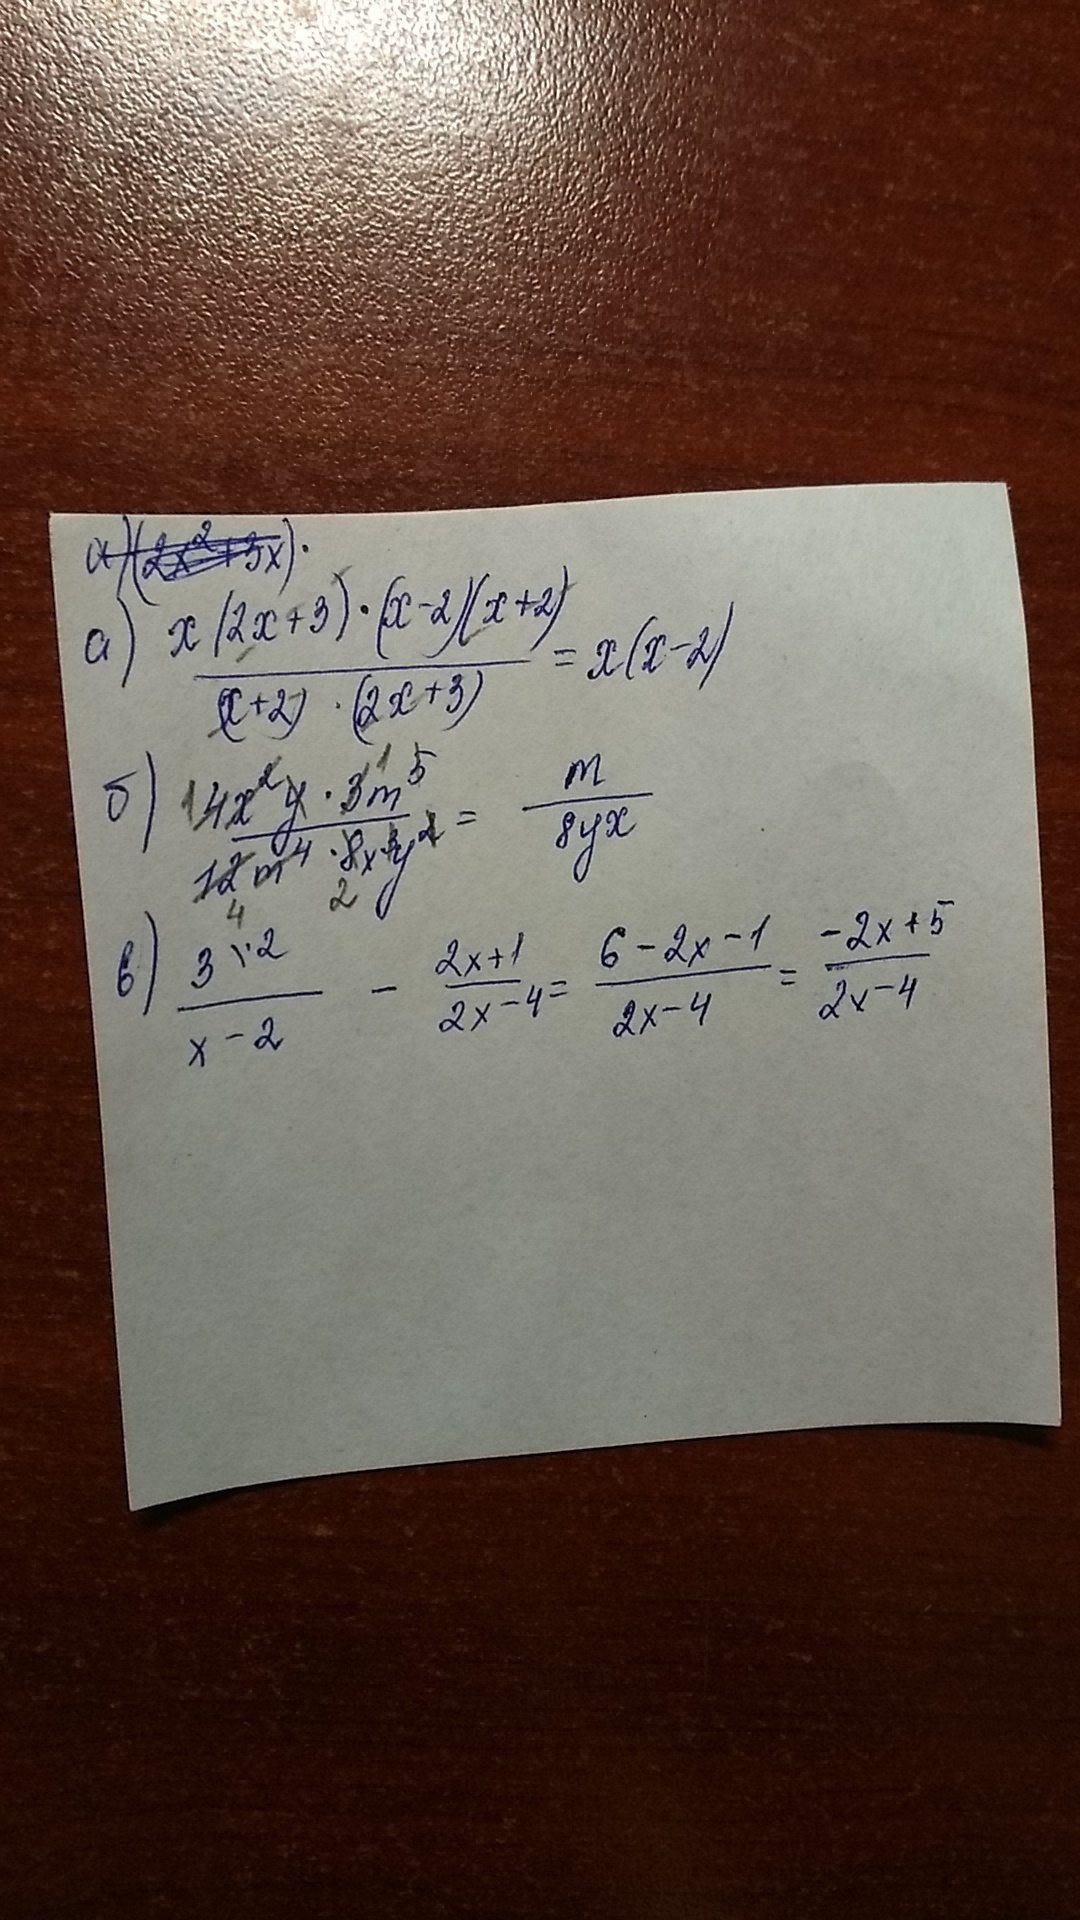 а) (2x²+3x)·
а) x(2x+3)·(x-2)(x+2) / (x+2)·(2x+3) = x(x-2)
б) 4x²y·3m⁵ / 12m⁴·8x³y² = m / 8yx
в) 3\·2 / x-2 - 2x+1 / 2x-4 = 6-2x-1 / 2x-4 = -2x+5 / 2x-4